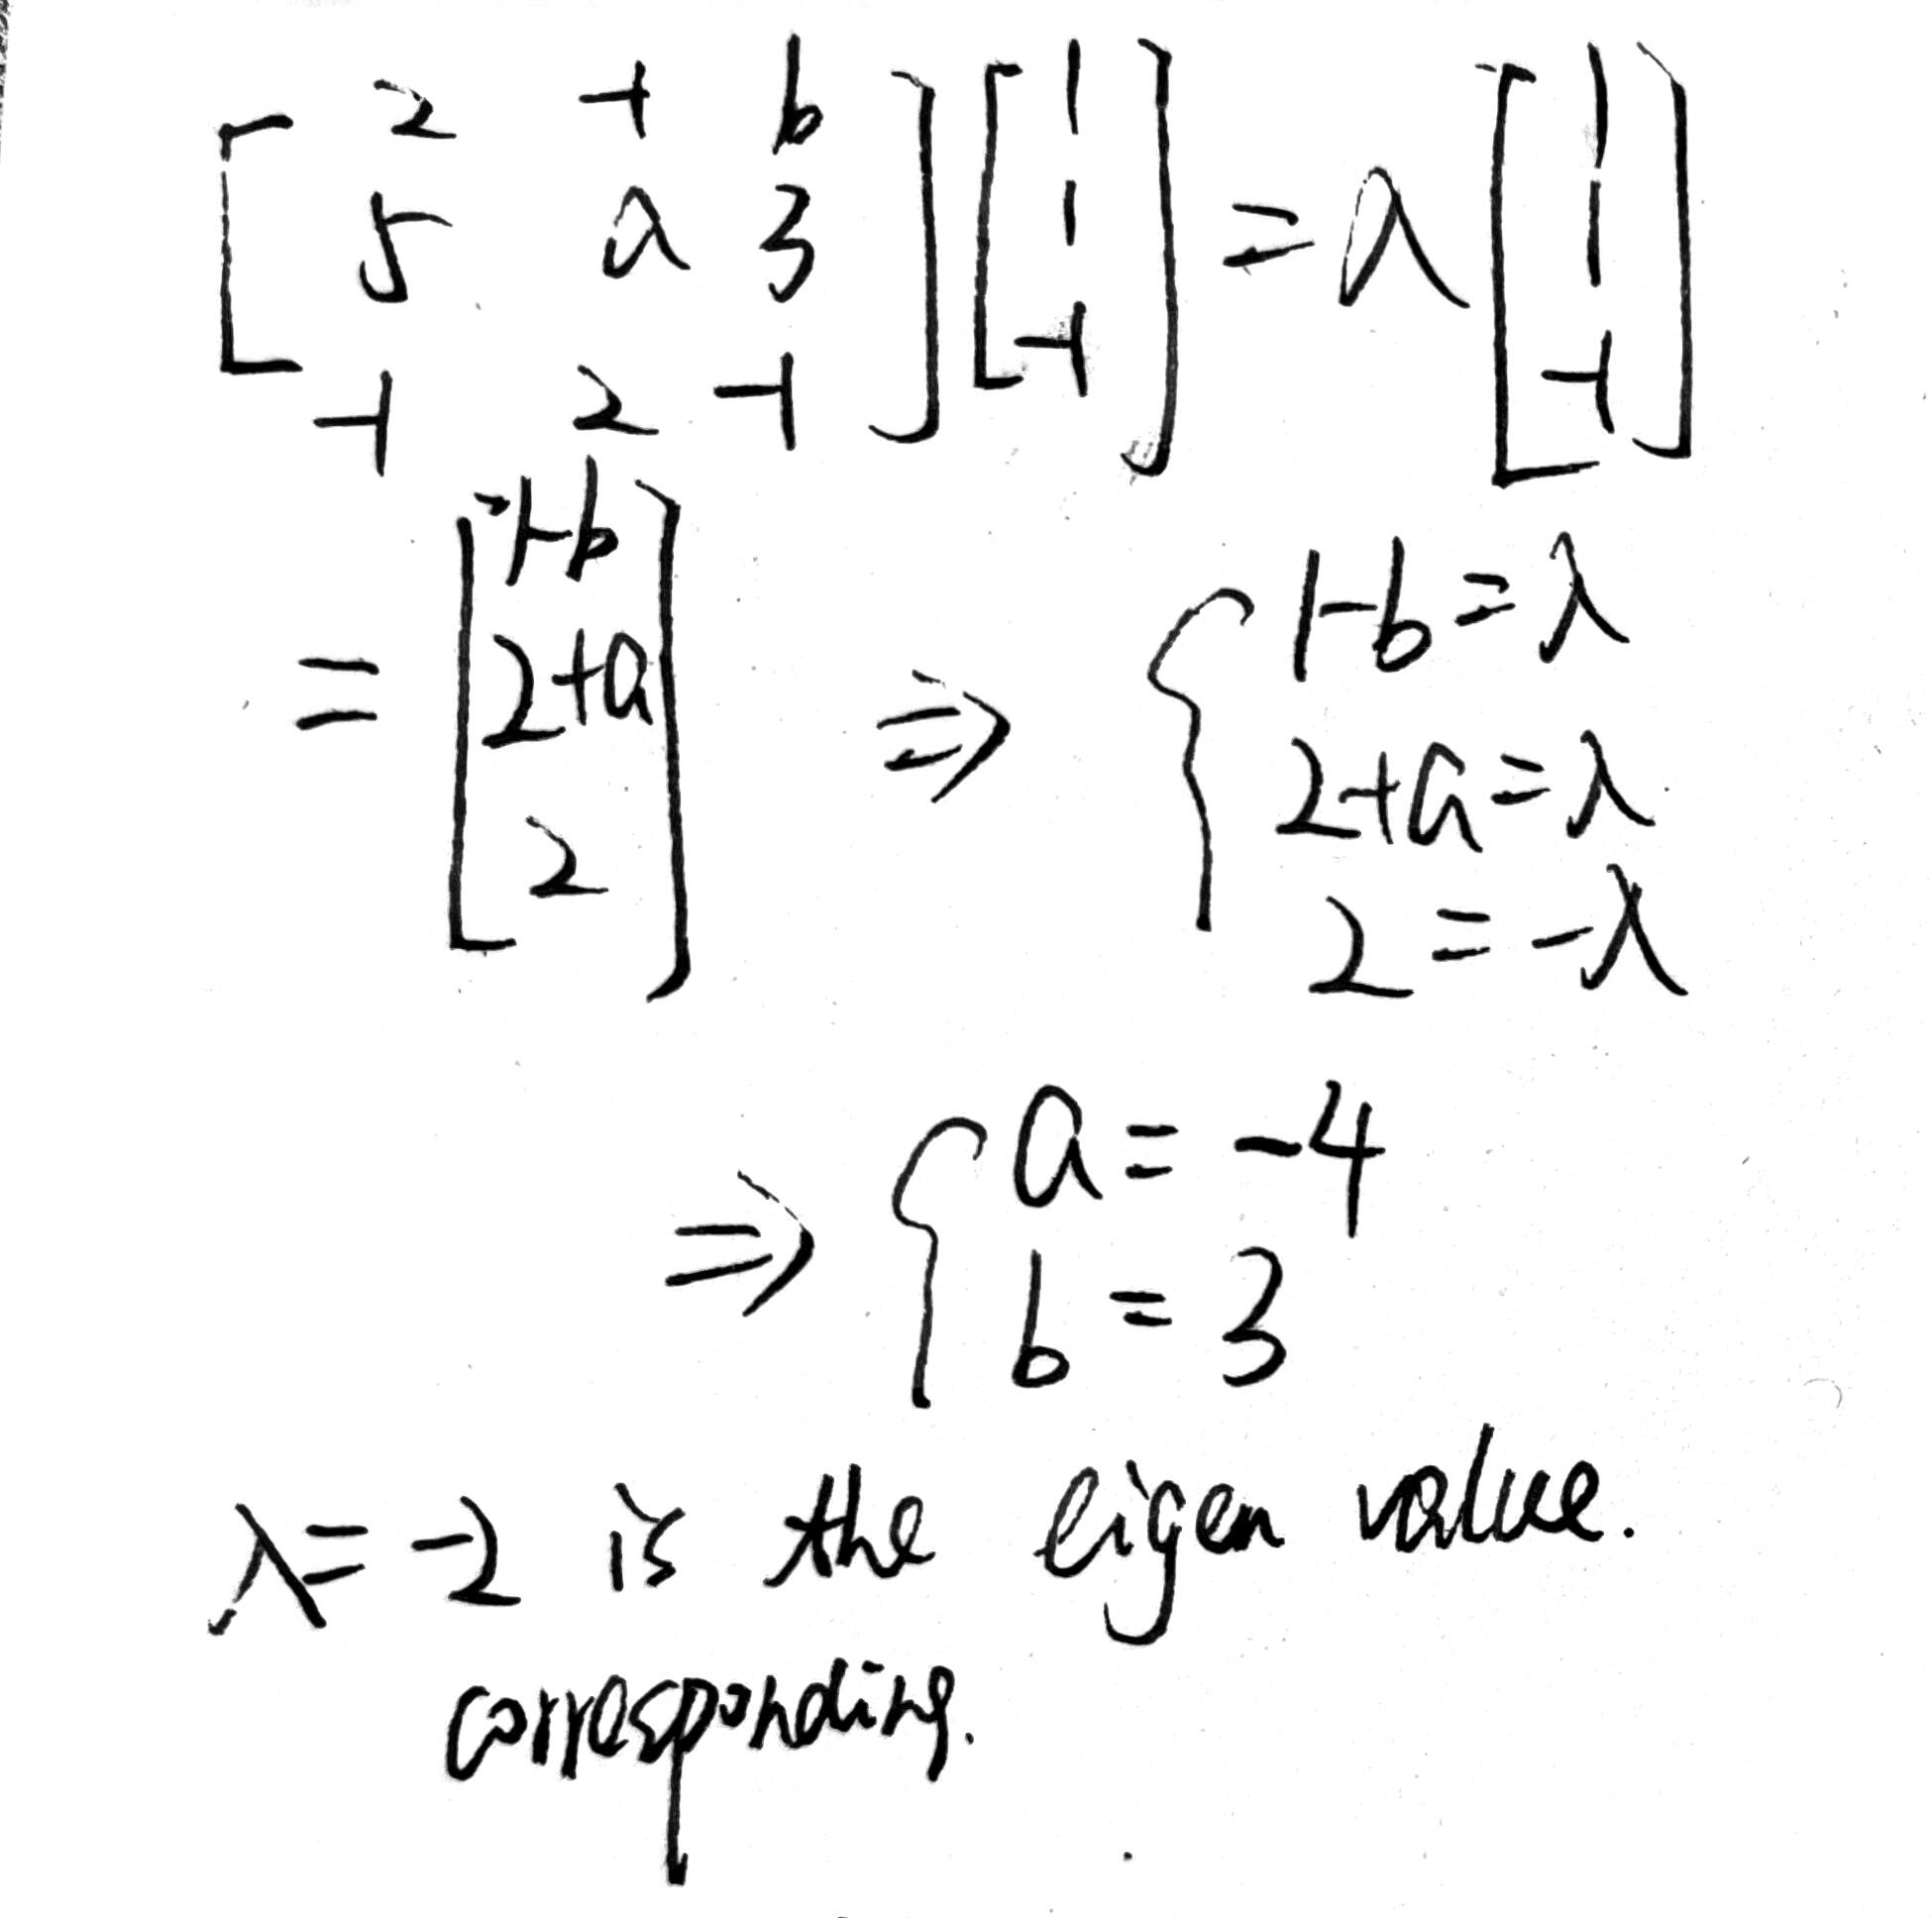 [2 -1 b] [1] = λ [1]
[5 a 3] [1] [1]
[-1 2 -1] [-1] [-1]
= [1-b] ⇒ { 1-b = λ
[2+a] 2+a = λ
[2] 2 = -λ
⇒ { a = -4
b = 3
λ = -2 is the eigen value.
corresponding.